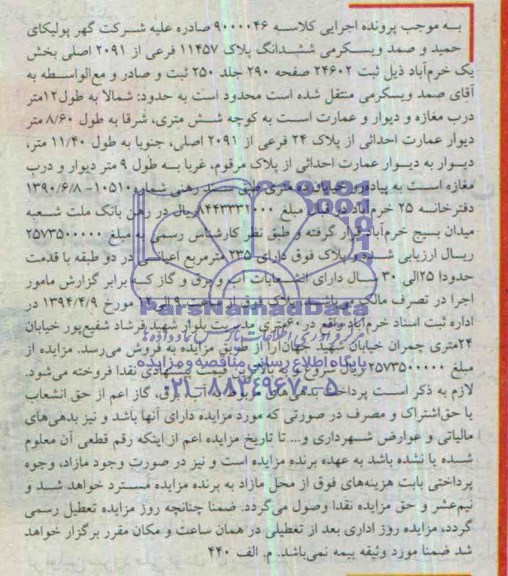 به موجب پرونده اجرایی کلاسه ۹۰۰۰۰۴۶ صادره علیه شرکت گهر پولیکای
حمید و صمد ویسکرمی ششدانگ پلاک ۱۱۴۵۷ فرعی از ۲۰۹۱ اصلی بخش
یک خرم‌آباد ذیل ثبت ۲۴۶۰۲ صفحه ۲۹۰ جلد ۲۵۰ ثبت و صادر و مع‌الواسطه به
آقای صمد ویسکرمی منتقل شده است محدود است به حدود: شمالا به طول ۱۲متر
درب مغازه و دیوار و عمارت است به کوچه شش متری، شرقا به طول ۸/۶۰ متر
دیوار عمارت احداثی از پلاک ۲۴ فرعی از ۲۰۹۱ اصلی، جنوبا به طول ۱۱/۴۰ متر،
دیوار به دیوار عمارت احداثی از پلاک مرقوم، غربا به طول ۹ متر دیوار و درب
مغازه است به پیاده‌رو خیابان ده متری طبق سند رهنی شماره ۱۰۵۱۰-۱۳۹۰/۶/۸
دفترخانه ۲۵ خرم‌آباد در قبال مبلغ ۸۴۴۳۳۳۱۰۰۰ریال در رهن بانک ملت شعبه
میدان بسیج خرم‌آباد قرار گرفته و طبق نظر کارشناس رسمی به مبلغ ۲۵۷۳۵۰۰۰۰۰
ریال ارزیابی شده و پلاک فوق دارای ۲۳۵ مترمربع اعیانی در دو طبقه با قدمت
حدودا ۲۵الی ۳۰ سال دارای انشعابات آب و برق و گاز که برابر گزارش مامور
اجرا در تصرف مالک می‌باشد پلاک فوق از ساعت ۹ الی ۱۲ مورخ ۱۳۹۴/۴/۹ در
اداره ثبت اسناد خرم‌آباد واقع در ۶۰متری مدیریت بلوار شهید فرشاد شفیع‌پور خیابان
۲۴متری چمران خیابان شهید جهان‌آرا از طریق مزایده به فروش می‌رسد. مزایده از
مبلغ ۲۵۷۳۵۰۰۰۰۰ ریال شروع و به بالاترین قیمت پیشنهادی نقدا فروخته می‌شود.
لازم به ذکر است پرداخت بدهی‌های مربوط به آب، برق، گاز اعم از حق انشعاب
یا حق‌اشتراک و مصرف در صورتی که مورد مزایده دارای آنها باشد و نیز بدهی‌های
مالیاتی و عوارض شهرداری و... تا تاریخ مزایده اعم از اینکه رقم قطعی آن معلوم
شده یا نشده باشد به عهده برنده مزایده است و نیز در صورت وجود مازاد، وجوه
پرداختی بابت هزینه‌های فوق از محل مازاد به برنده مزایده مسترد خواهد شد و
نیم‌عشر و حق مزایده نقدا وصول می‌گردد. ضمنا چنانچه روز مزایده تعطیل رسمی
گردد، مزایده روز اداری بعد از تعطیلی در همان ساعت و مکان مقرر برگزار خواهد
شد ضمنا مورد وثیقه بیمه نمی‌باشد. م. الف ۴۴۰
ParsNamadData
پایگاه اطلاع رسانی مناقصه و مزایده
۰۲۱-۸۸۳۴۹۶۷۰-۵